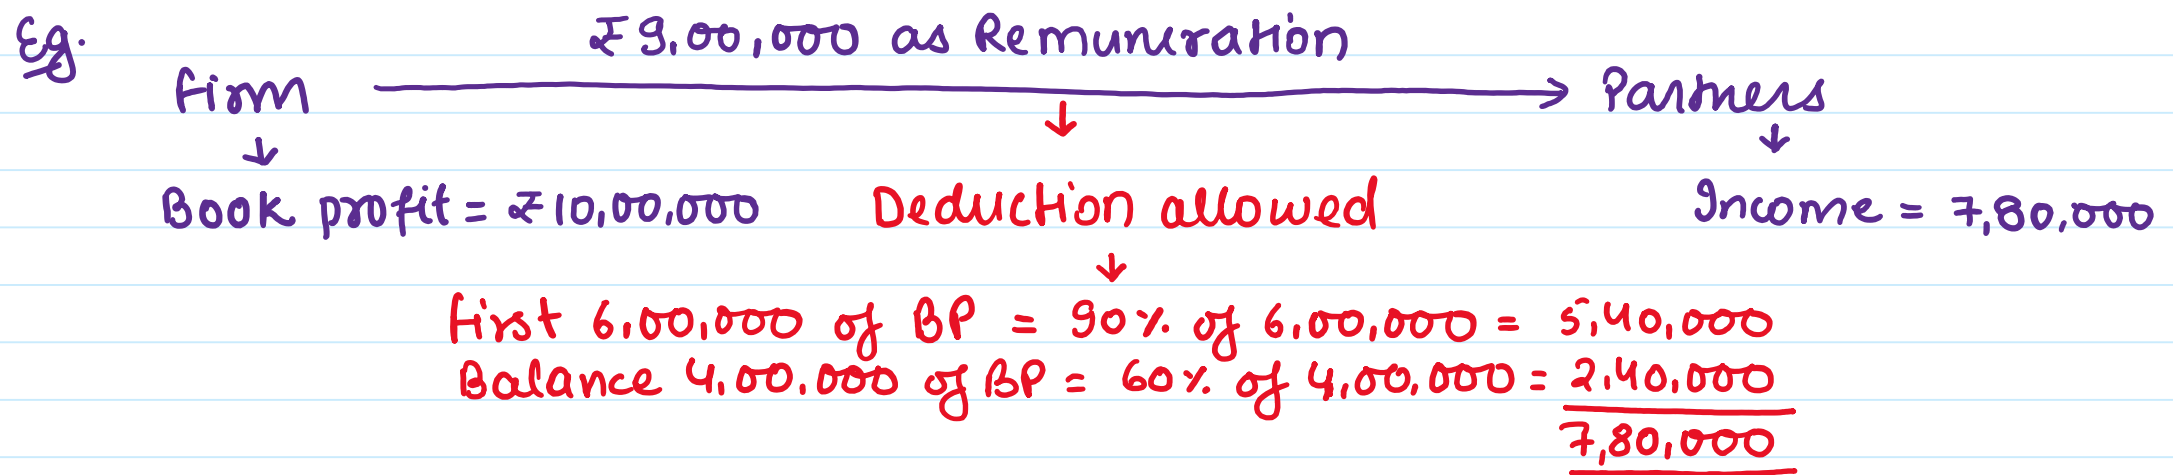 Eg.
₹9,00,000 as Remuneration
Firm → Partners
↓ ↓ ↓
Book profit = ₹10,00,000 Deduction allowed Income = 7,80,000
↓
First 6,00,000 of BP = 90% of 6,00,000 = 5,40,000
Balance 4,00,000 of BP = 60% of 4,00,000 = 2,40,000
7,80,000